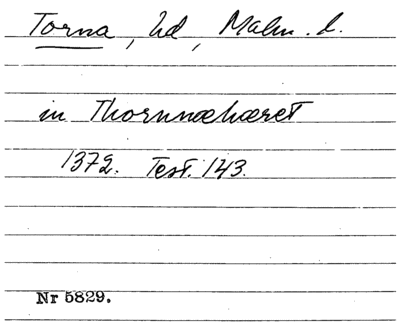 Torna, hd, Malm. l.
in Thornnæhæret
1372. Test. 143.
Nr 5829.